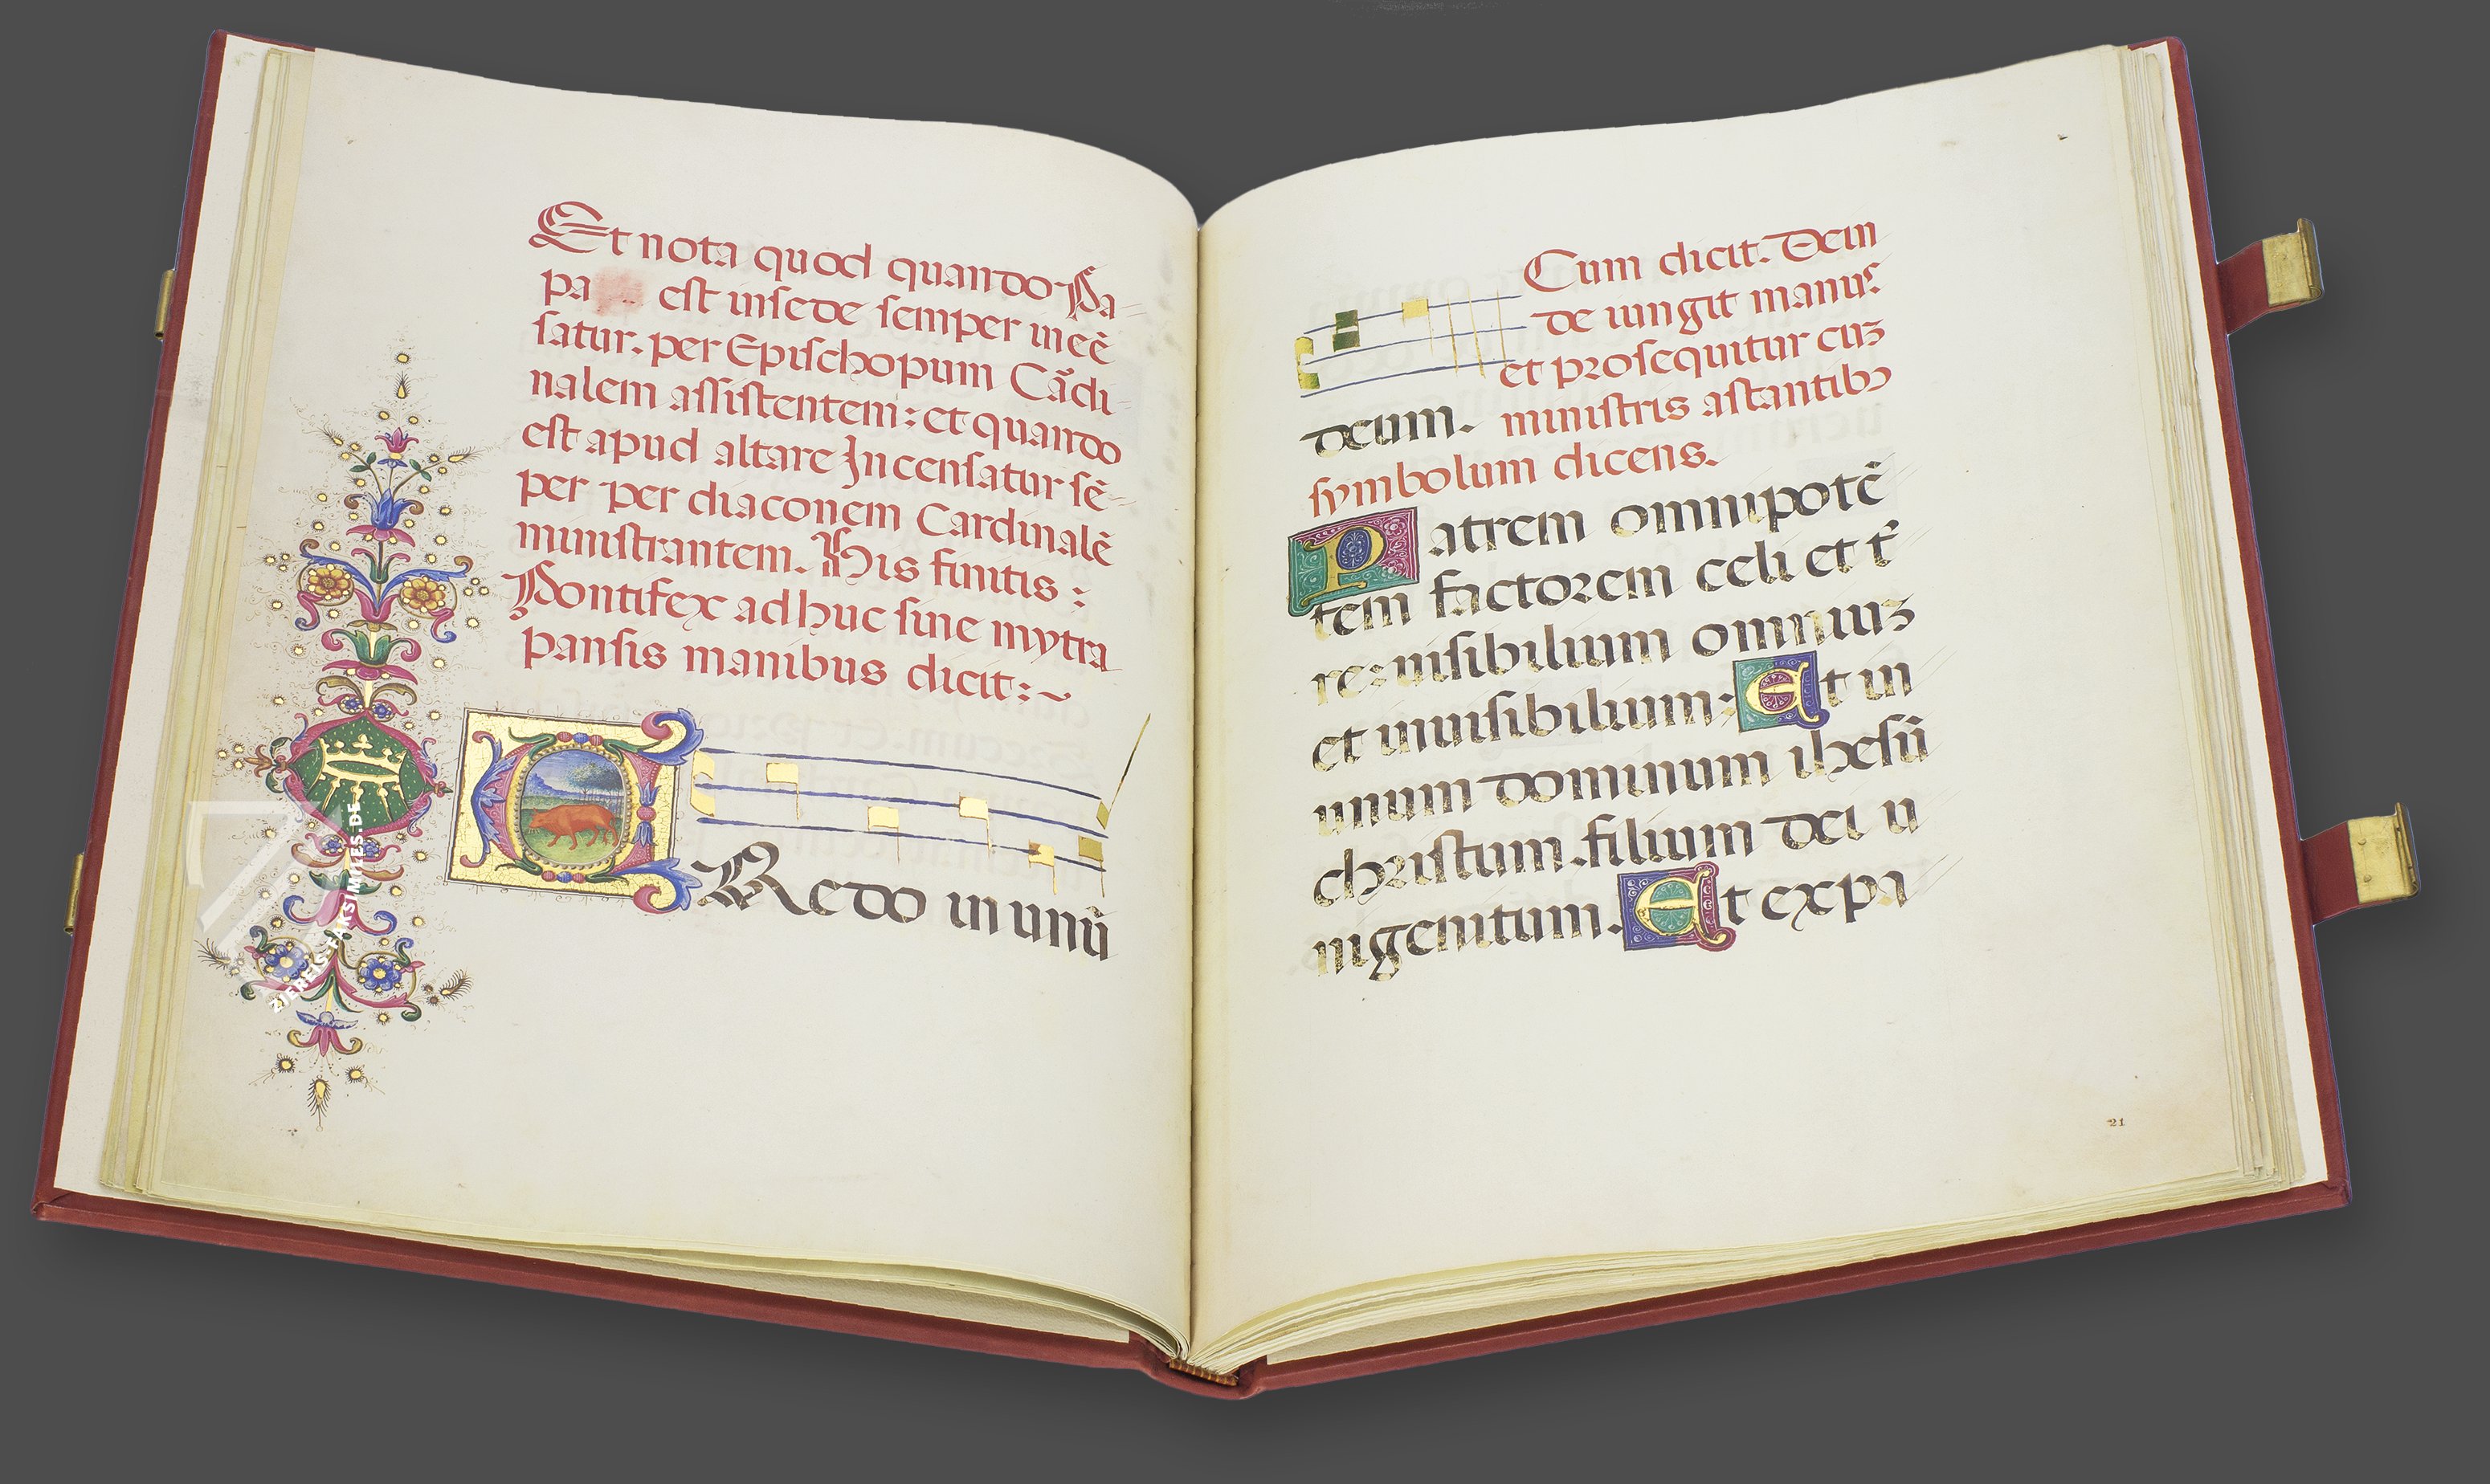 Et nota quod quando Pa-
pa est in sede semper incē
satur. per Epischopum Cādi-
nalem assistentem: et quando
est apud altare Incensatur sē-
per per diaconem Cardinalē
ministrantem. His finitis:
Pontifex adhuc sine mytra
pansis manibus dicit:~
CRedo in unū
Cum dicit. Dein
de iungit manus
et prosequitur cuz
deum. ministris astantibꝫ
symbolum dicens.
Patrem omnipotē
tem factorem celi et t̄r
re: visibilium omniuz
et invisibilium: Et in
unum dominum ihesū
christum. filium dei u
nigenitum. Et expa
21
ZIEREIS FAKSIMILES.DE